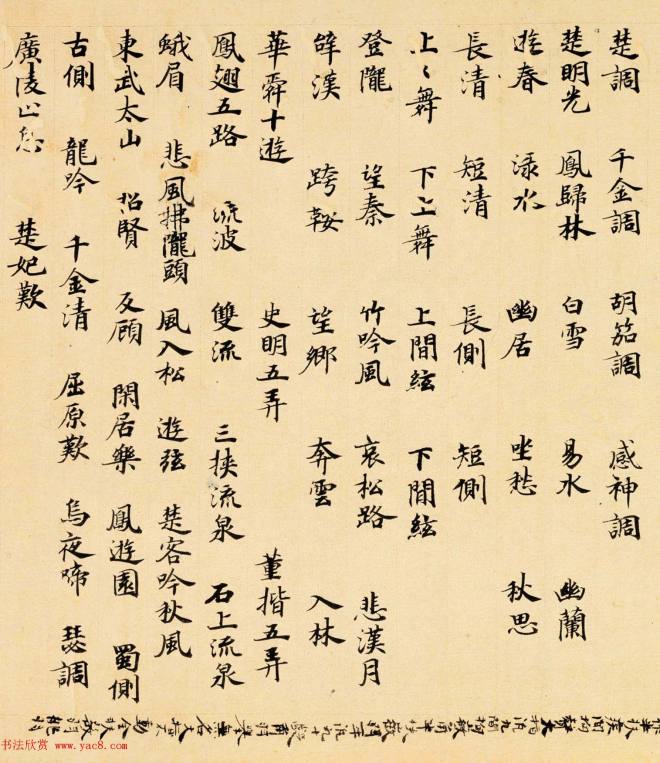 楚調 千金調 胡笳調 感神調
楚明光 鳳歸林 白雪 易水 幽蘭
遊春 淥水 幽居 坐愁 秋思
長清 短清 長側 短側
上〻舞 下上舞 上間絃 下間絃
登隴 望秦 竹吟風 哀松路 悲漢月
辭漢 跨鞍 望鄉 奔雲 入林
華舜十遊 史明五弄 董揩五弄
鳳翅五路 流波 雙流 三挾流泉 石上流泉
蛾眉 悲風拂隴頭 風入松 遊弦 楚客吟秋風
東武太山 招賢 反顧 閑居樂 鳳遊園 蜀側
古側 龍吟 千金清 屈原歎 烏夜啼 瑟調
廣陵止息 楚妃歎
书法欣赏 www.yac8.com